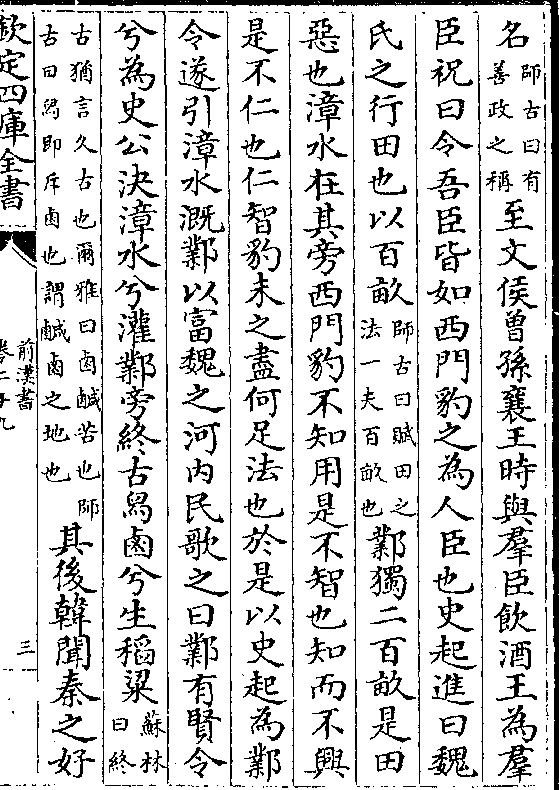 名師古曰有善政之稱至文侯曾孫襄王時與羣臣飲酒王為羣
臣祝曰令吾臣皆如西門豹之為人臣也史起進曰魏
氏之行田也以百畝師古曰賦田之法一夫百畝也鄴獨二百畝是田
惡也漳水在其旁西門豹不知用是不智也知而不興
是不仁也仁智豹未之盡何足法也於是以史起為鄴
令遂引漳水溉鄴以富魏之河内民歌之曰鄴有賢令
兮為史公決漳水兮灌鄴旁終古舄鹵兮生稻粱蘇林曰終
古猶言久古也爾雅曰鹵鹹苦也師古曰舄即斥鹵也謂鹹鹵之地也其後韓聞秦之好
欽定四庫全書
前漢書
卷二十九
三